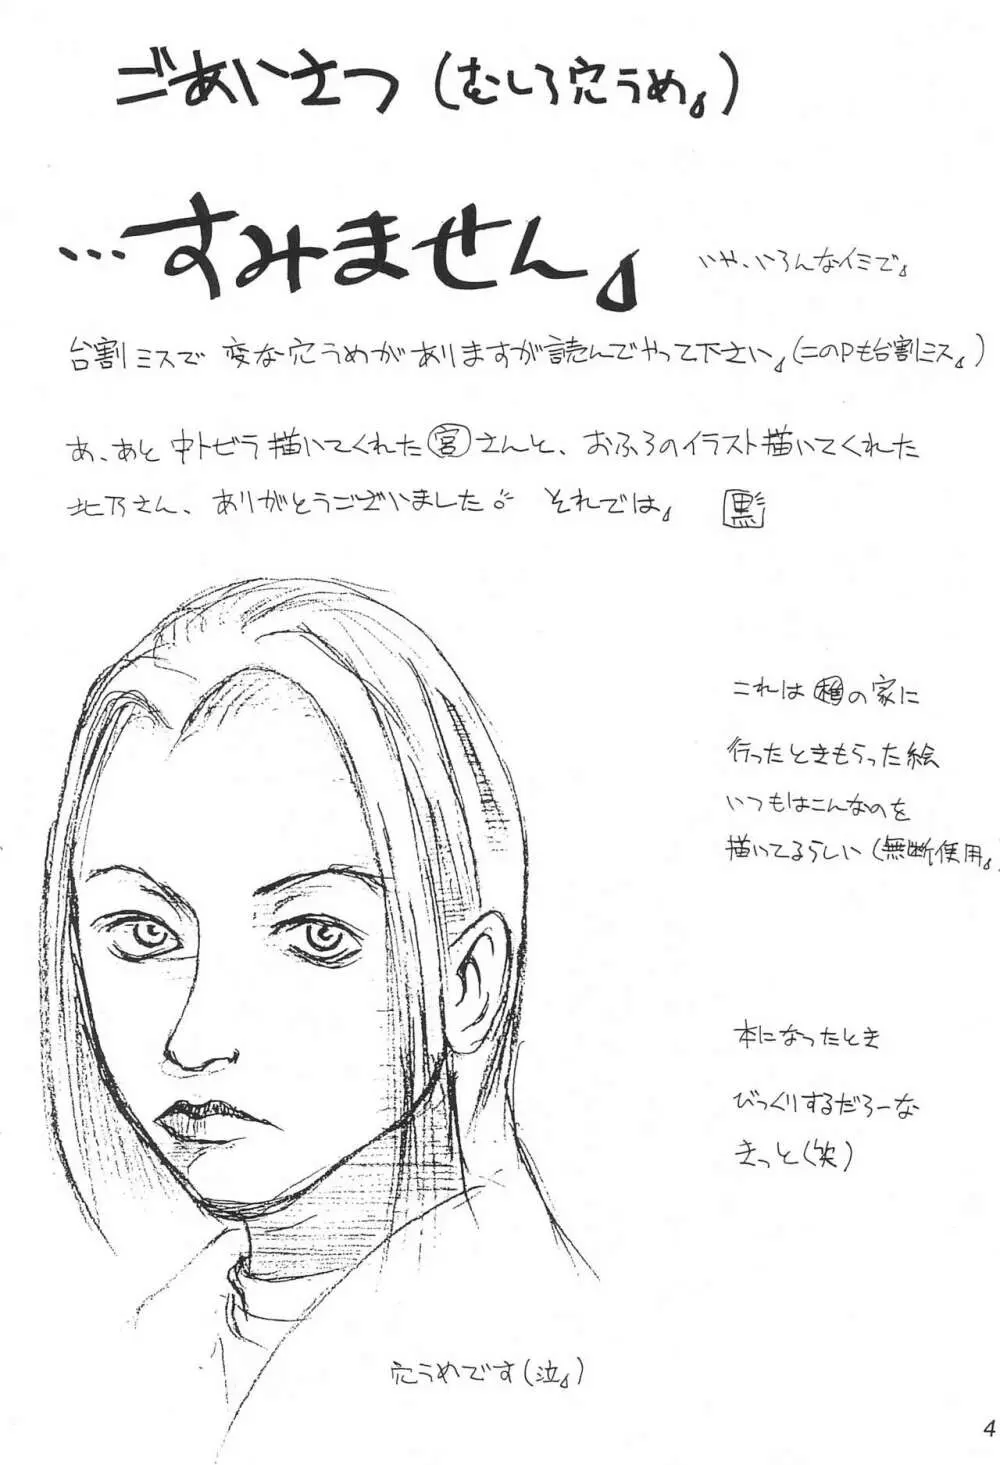 ごあいさつ（むしろ穴うめ。）
…すみません。
いや、いろんなイミで。
台割ミスで変な穴うめがありますが読んでやって下さい。（このPも台割ミス。）
あ、あと中トビラ描いてくれた宮さんと、おふろのイラスト描いてくれた
北乃さん、ありがとうございました。それでは。 黒
これはの家に
行ったときもらった絵
いつもはこんなのを
描いてるらしい（無断使用。）
本になったとき
びっくりするだろーな
きっと（笑）
穴うめです（泣。）
4